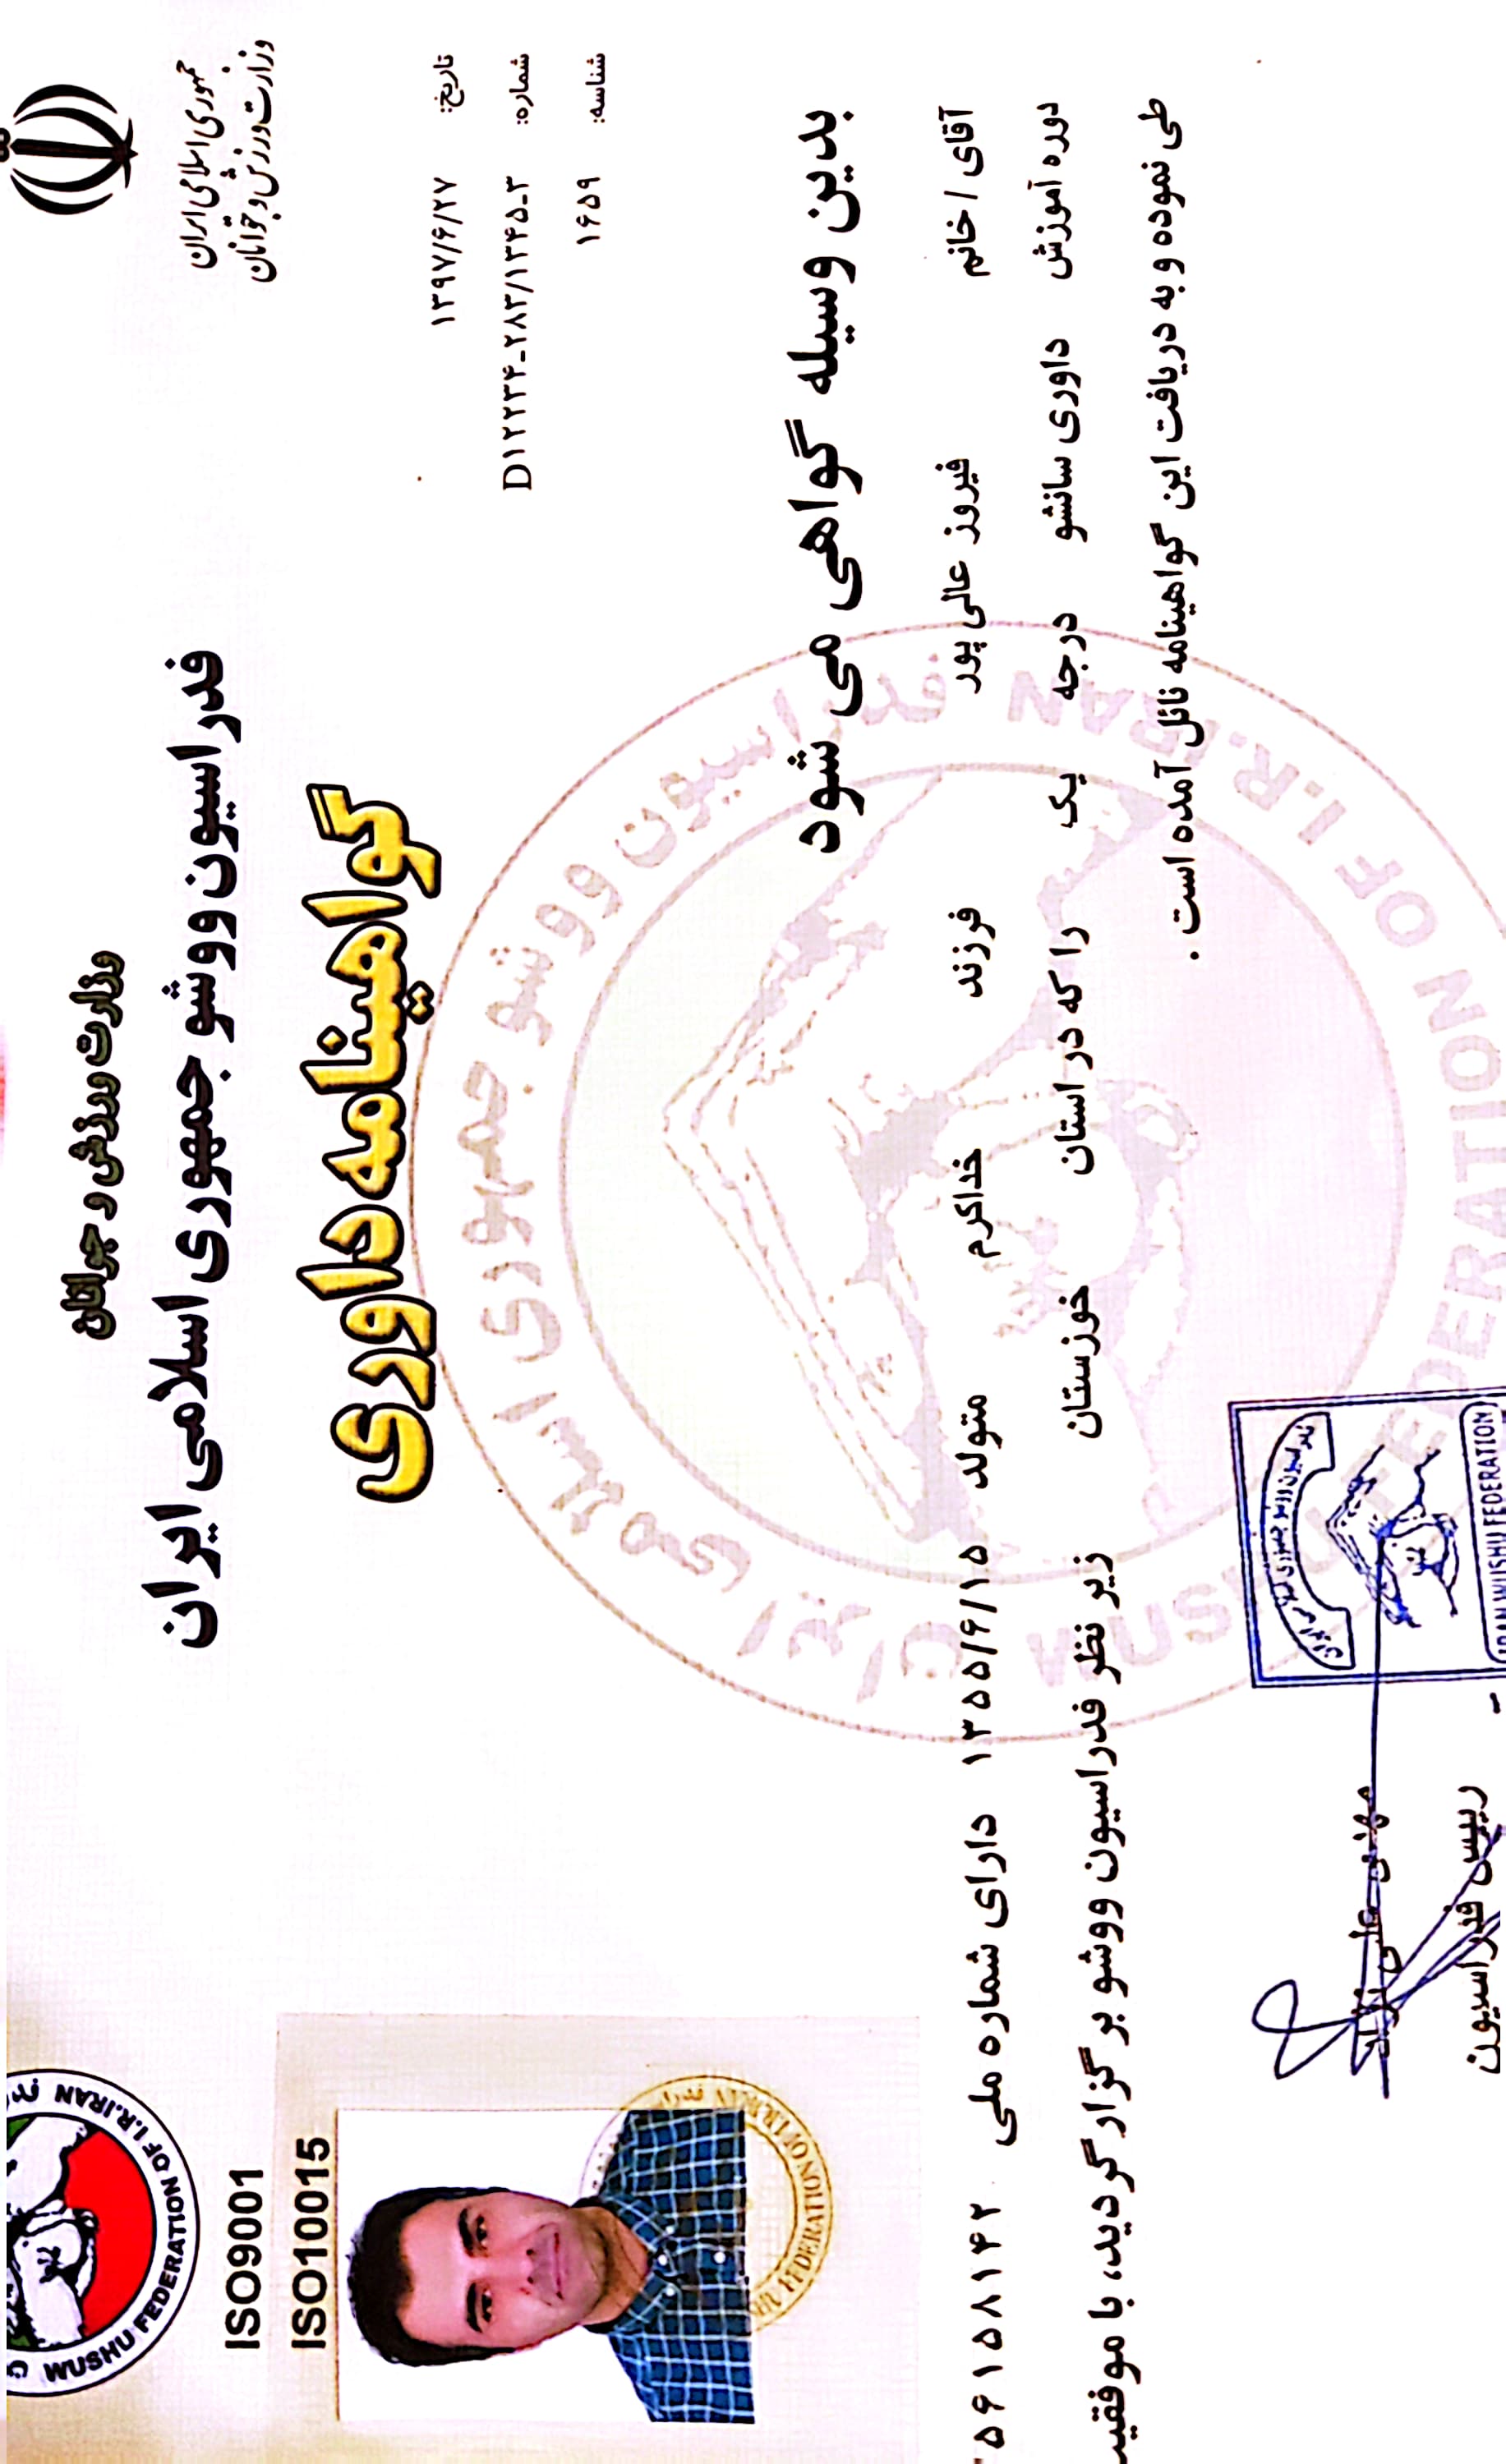 جمهوری اسلامی ایران
وزارت ورزش و جوانان
تاریخ: ۱۳۹۷/۶/۲۷
شماره: D۱۲۲۳۴-۲۸۳/۱۳۴۵-۳
شناسه: ۱۶۵۹
وزارت ورزش و جوانان
فدراسیون ووشو جمهوری اسلامی ایران
گواهینامه داوری
WUSHU FEDERATION OF I.R.IRAN
ISO9001
ISO10015
بدین وسیله گواهی می شود
آقای / خانم فیروز عالی پور فرزند خداکرم متولد ۱۳۵۵/۶/۱۵ دارای شماره ملی ۵۶۱۵۸۱۴۲
دوره آموزش داوری سانشو درجه یک را که در استان خوزستان زیر نظر فدراسیون ووشو برگزار گردید، با موفقیت
طی نموده و به دریافت این گواهینامه نائل آمده است .
فدراسیون ووشو جمهوری اسلامی ایران
WUSHU FEDERATION OF I.R.IRAN
فدراسیون ووشو جمهوری اسلامی ایران
IRAN WUSHU FEDERATION
مهدی علی نژاد
رییس فدراسیون